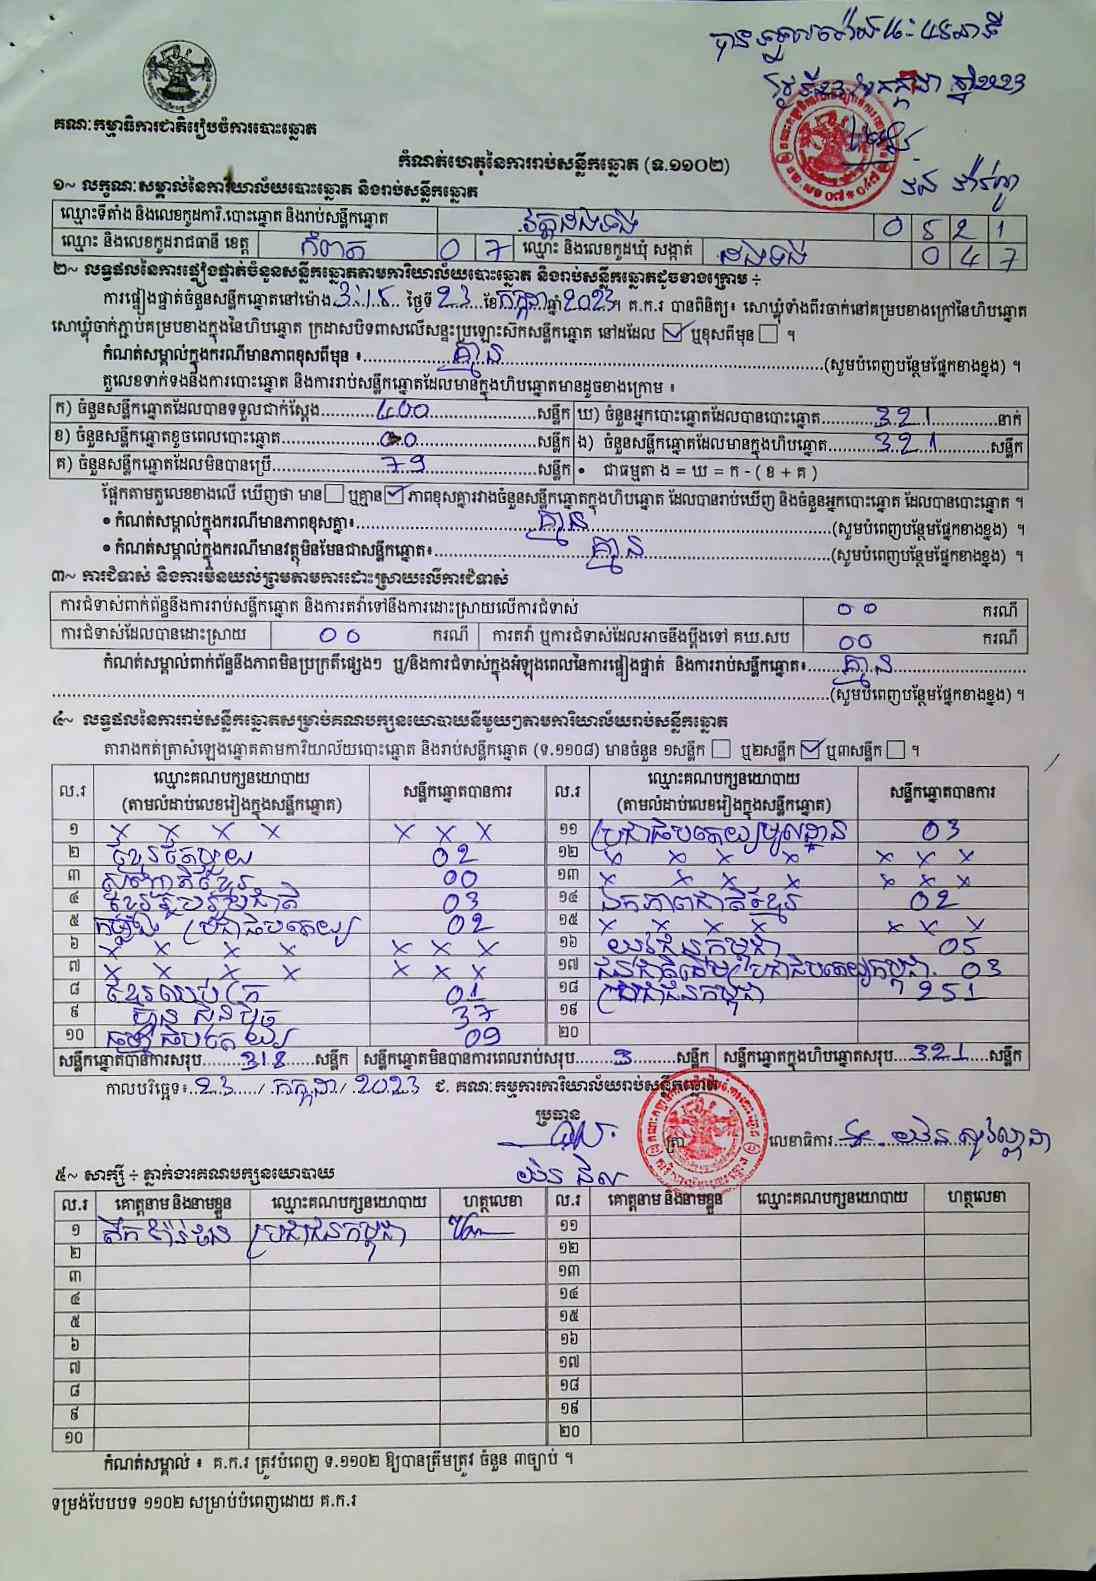 បានទទួលម៉ោង
ថ្ងៃទី23 ខែកក្កដា ឆ្នាំ2023
គណៈកម្មាធិការជាតិរៀបចំការបោះឆ្នោត
កំណត់ហេតុនៃការរាប់សន្លឹកឆ្នោត (ទ.១១០២)
១~ លក្ខណៈសម្គាល់នៃការិយាល័យបោះឆ្នោត និងរាប់សន្លឹកឆ្នោត
ឈ្មោះទីតាំង និងលេខកូដការិ.បោះឆ្នោត និងរាប់សន្លឹកឆ្នោត វត្តដងទង់ 0 5 2 1
ឈ្មោះ និងលេខកូដរាជធានី ខេត្ត កំពត 0 7 ឈ្មោះ និងលេខកូដឃុំ សង្កាត់ ដងទង់ 0 4 7
២~ លទ្ធផលនៃការផ្ទៀងផ្ទាត់ចំនួនសន្លឹកឆ្នោតតាមការិយាល័យបោះឆ្នោត និងរាប់សន្លឹកឆ្នោតដូចខាងក្រោម ÷
ការផ្ទៀងផ្ទាត់ចំនួនសន្លឹកឆ្នោតនៅម៉ោង 3:15 ថ្ងៃទី 23 ខែ កក្កដា ឆ្នាំ 2023 ។ គ.ក.រ បានពិនិត្យ៖ សោឃ្លុំទាំងពីរចាក់នៅគម្របខាងក្រៅនៃហិបឆ្នោត
សោឃ្លុំចាក់ភ្ជាប់គម្របខាងក្នុងនៃហិបឆ្នោត ក្រដាសបិទពាសលើសន្ទះប្រឡោះស៊កសន្លឹកឆ្នោត នៅដដែល ☑ ឬខុសពីមុន ☐ ។
កំណត់សម្គាល់ក្នុងករណីមានភាពខុសពីមុន ៖ គ្មាន (សូមបំពេញបន្ថែមផ្នែកខាងខ្នង) ។
តួលេខទាក់ទងនឹងការបោះឆ្នោត និងការរាប់សន្លឹកឆ្នោតដែលមានក្នុងហិបឆ្នោតមានដូចខាងក្រោម ៖
ក) ចំនួនសន្លឹកឆ្នោតដែលបានទទួលជាក់ស្តែង 400 សន្លឹក ឃ) ចំនួនអ្នកបោះឆ្នោតដែលបានបោះឆ្នោត 321 នាក់
ខ) ចំនួនសន្លឹកឆ្នោតខូចពេលបោះឆ្នោត 00 សន្លឹក ង) ចំនួនសន្លឹកឆ្នោតដែលមានក្នុងហិបឆ្នោត 321 សន្លឹក
គ) ចំនួនសន្លឹកឆ្នោតដែលមិនបានប្រើ 79 សន្លឹក • ជាធម្មតា ង = ឃ = ក - ( ខ + គ )
ផ្អែកតាមតួលេខខាងលើ ឃើញថា មាន ☐ ឬគ្មាន ☑ ភាពខុសគ្នារវាងចំនួនសន្លឹកឆ្នោតក្នុងហិបឆ្នោត ដែលបានរាប់ឃើញ និងចំនួនអ្នកបោះឆ្នោត ដែលបានបោះឆ្នោត ។
• កំណត់សម្គាល់ក្នុងករណីមានភាពខុសគ្នា៖ គ្មាន (សូមបំពេញបន្ថែមផ្នែកខាងខ្នង) ។
• កំណត់សម្គាល់ក្នុងករណីមានវត្ថុមិនមែនជាសន្លឹកឆ្នោត៖ គ្មាន (សូមបំពេញបន្ថែមផ្នែកខាងខ្នង) ។
៣~ ការជំទាស់ និងការមិនយល់ព្រមតាមការដោះស្រាយលើការជំទាស់
ការជំទាស់ពាក់ព័ន្ធនឹងការរាប់សន្លឹកឆ្នោត និងការតវ៉ាទៅនឹងការដោះស្រាយលើការជំទាស់ 00 ករណី
ការជំទាស់ដែលបានដោះស្រាយ 00 ករណី ការតវ៉ា ឬការជំទាស់ដែលអាចនឹងប្តឹងទៅ គឃ.សប 00 ករណី
កំណត់សម្គាល់ពាក់ព័ន្ធនឹងភាពមិនប្រក្រតីផ្សេងៗ ឬ/និងការជំទាស់ក្នុងអំឡុងពេលនៃការផ្ទៀងផ្ទាត់ និងការរាប់សន្លឹកឆ្នោត៖ គ្មាន
(សូមបំពេញបន្ថែមផ្នែកខាងខ្នង) ។
៤~ លទ្ធផលនៃការរាប់សន្លឹកឆ្នោតសម្រាប់គណបក្សនយោបាយនីមួយៗតាមការិយាល័យរាប់សន្លឹកឆ្នោត
តារាងកត់ត្រាសំឡេងឆ្នោតតាមការិយាល័យបោះឆ្នោត និងរាប់សន្លឹកឆ្នោត (ទ.១១០៨) មានចំនួន ១សន្លឹក ☐ ឬ២សន្លឹក ☑ ឬ៣សន្លឹក ☐ ។
ល.រ ឈ្មោះគណបក្សនយោបាយ (តាមលំដាប់លេខរៀងក្នុងសន្លឹកឆ្នោត) សន្លឹកឆ្នោតបានការ ល.រ ឈ្មោះគណបក្សនយោបាយ (តាមលំដាប់លេខរៀងក្នុងសន្លឹកឆ្នោត) សន្លឹកឆ្នោតបានការ
១ X X X X X X X ១១ ប្រជាធិបតេយ្យមូលដ្ឋាន 03
២ ខ្មែរតែមួយ 02 ១២ X X X X X X X
៣ សញ្ជាតិខ្មែរ 00 ១៣ X X X X X X X
៤ ខ្មែររួបរួមជាតិ 03 ១៤ ឯកភាពជាតិខ្មែរ 02
៥ កម្លាំង ប្រជាធិបតេយ្យ 02 ១៥ X X X X X X X
៦ X X X X X X X ១៦ យុវជនកម្ពុជា 05
៧ X X X X X X X ១៧ ជនជាតិដើមប្រជាធិបតេយ្យកម្ពុជា 03
៨ ខ្មែរឈប់ក្រ 01 ១៨ ប្រជាជនកម្ពុជា 251
៩ ហ្វ៊ុនស៊ិនប៉ិច 37 ១៩
១០ ធម្មាធិបតេយ្យ 09 ២០
សន្លឹកឆ្នោតបានការសរុប 318 សន្លឹក សន្លឹកឆ្នោតមិនបានការពេលរាប់សរុប 3 សន្លឹក សន្លឹកឆ្នោតក្នុងហិបឆ្នោតសរុប 321 សន្លឹក
កាលបរិច្ឆេទ៖ 23 / កក្កដា / 2023 ជ. គណៈកម្មការការិយាល័យរាប់សន្លឹកឆ្នោត
ប្រធាន ត្រា លេខាធិការ
៥~ សាក្សី ÷ ភ្នាក់ងារគណបក្សនយោបាយ
ល.រ គោត្តនាម និងនាមខ្លួន ឈ្មោះគណបក្សនយោបាយ ហត្ថលេខា ល.រ គោត្តនាម និងនាមខ្លួន ឈ្មោះគណបក្សនយោបាយ ហត្ថលេខា
១ ប្រជាជនកម្ពុជា ១១
២ ១២
៣ ១៣
៤ ១៤
៥ ១៥
៦ ១៦
៧ ១៧
៨ ១៨
៩ ១៩
១០ ២០
កំណត់សម្គាល់ ៖ គ.ក.រ ត្រូវបំពេញ ទ.១១០២ ឱ្យបានត្រឹមត្រូវ ចំនួន ៣ច្បាប់ ។
ទម្រង់បែបបទ ១១០២ សម្រាប់បំពេញដោយ គ.ក.រ